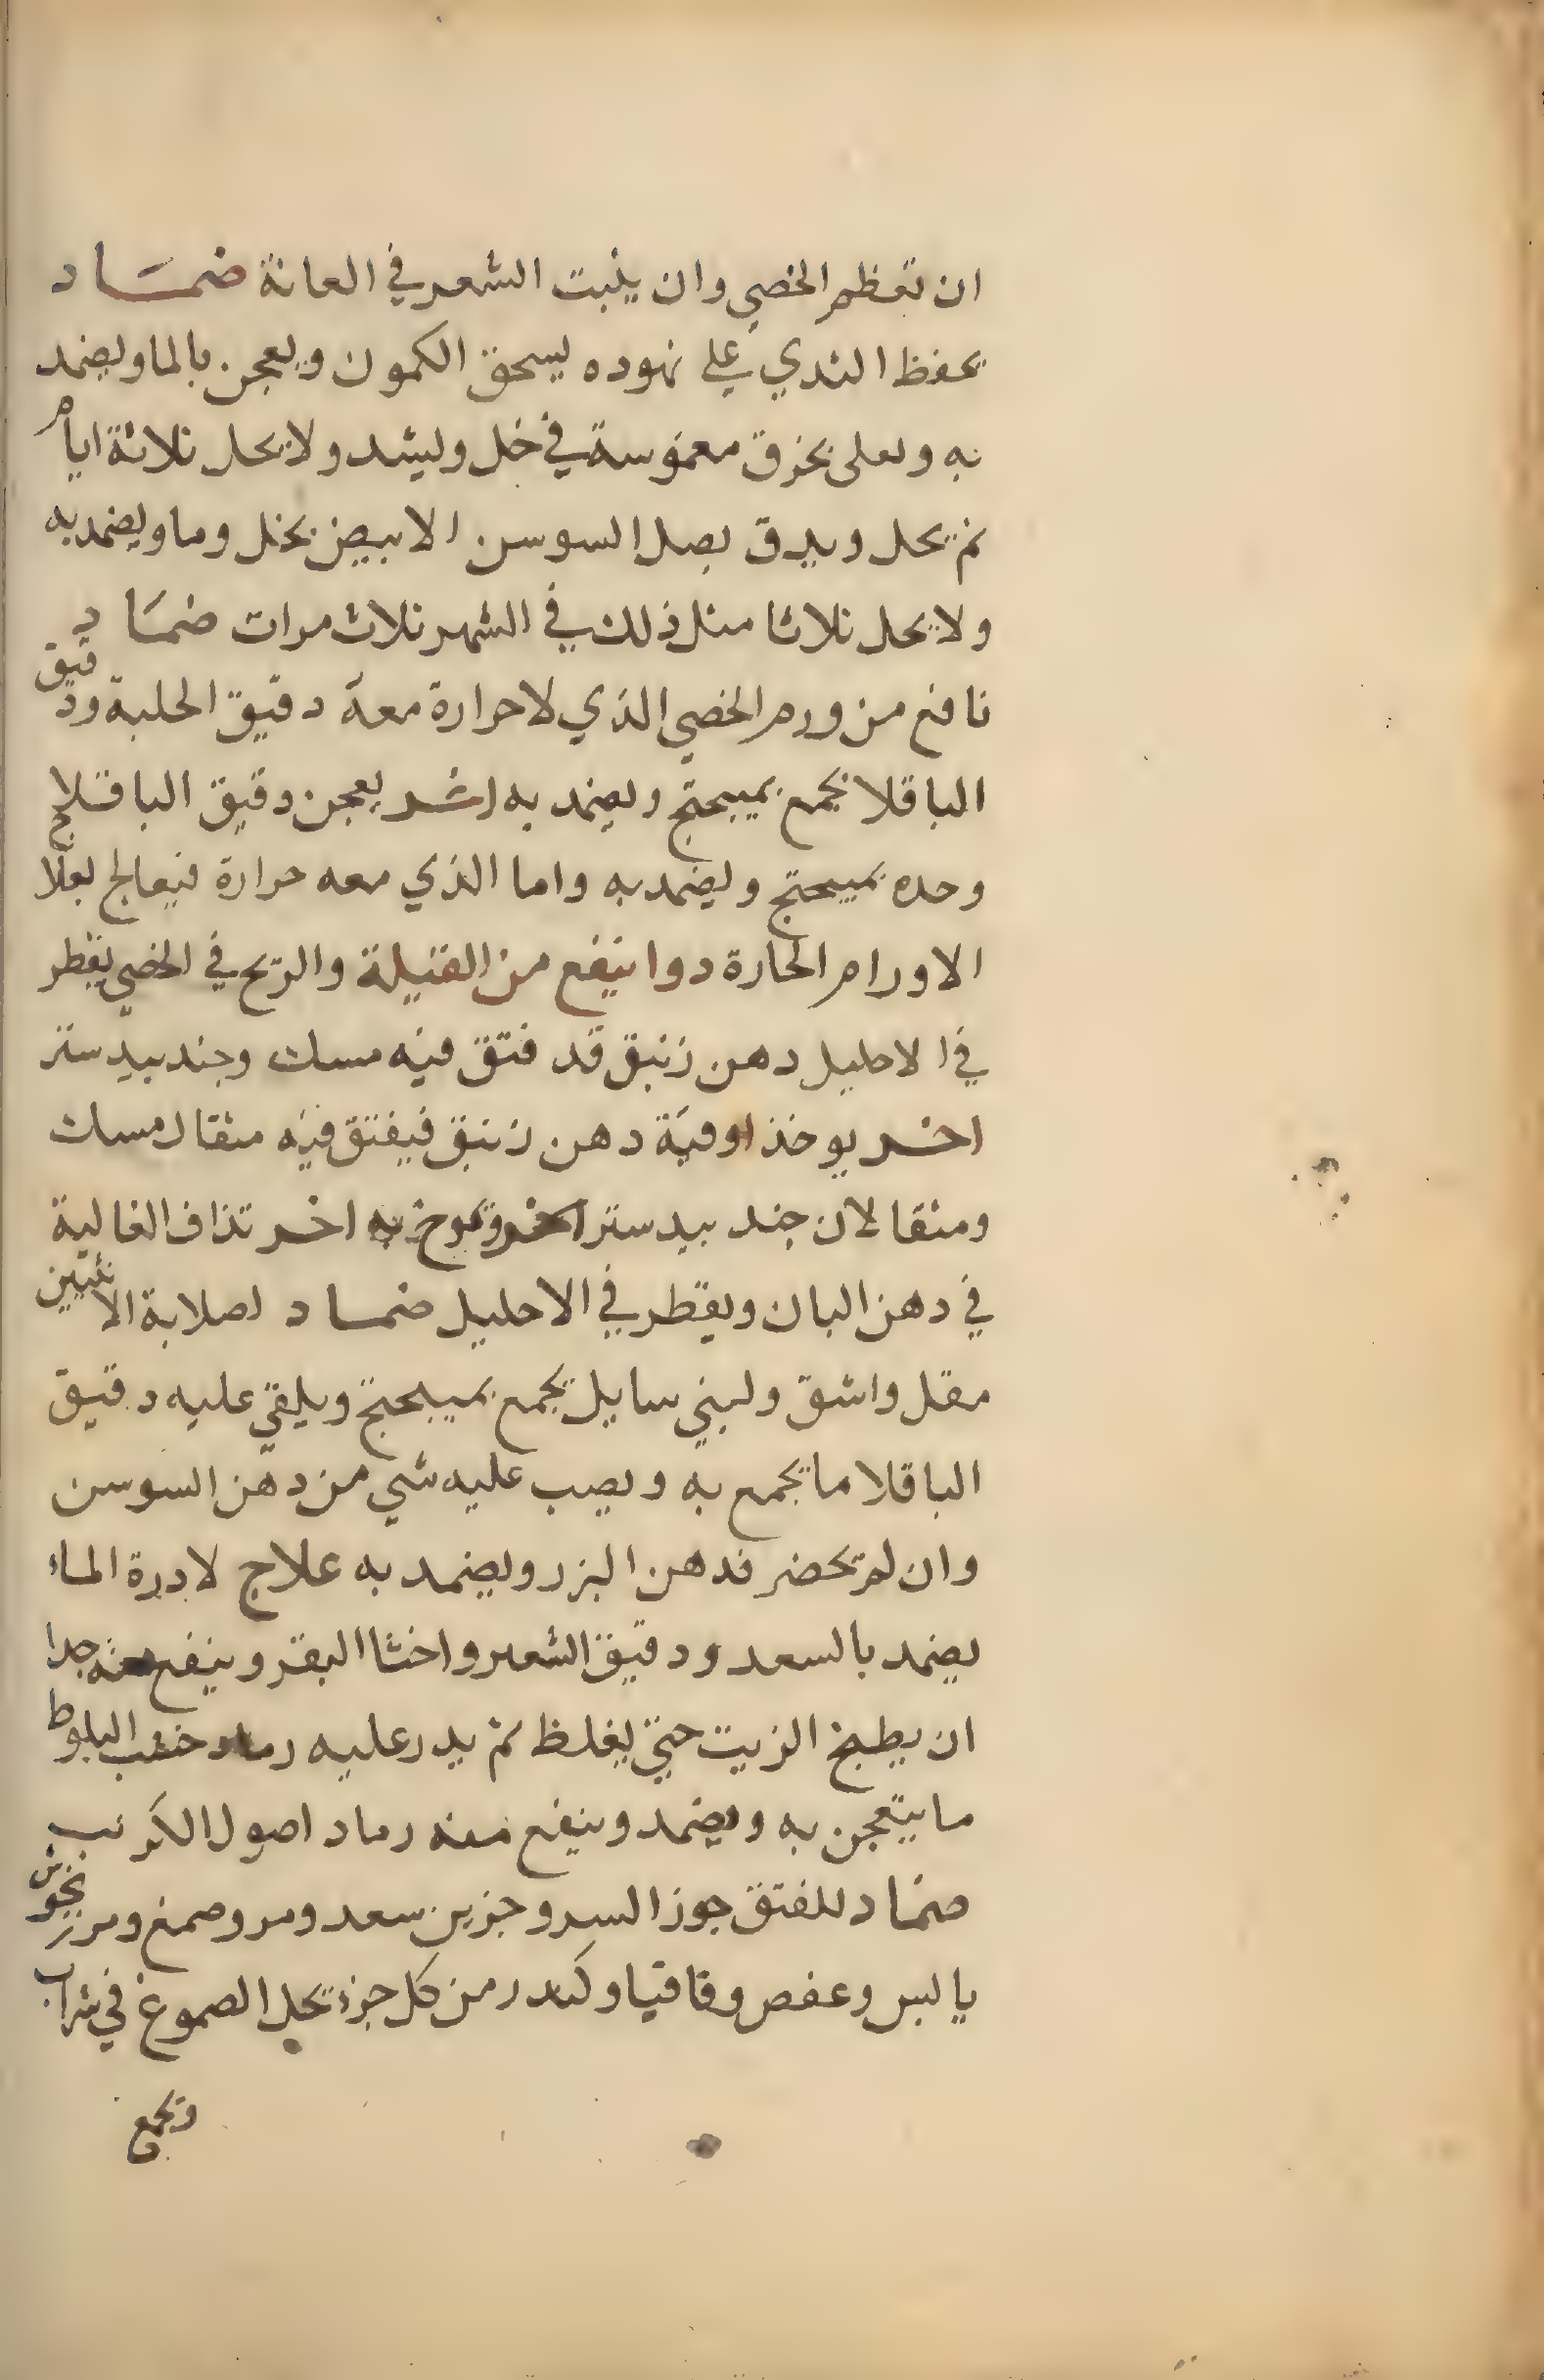 ان تعظم الخصي وان ينبت الشعر في العانة ضماد
يحفظ الثدي على نهوده يسحق الكمون ويعجن بالما ويضمد
به ويعلى بخرق مغموسة في خل ويشد ولا يحل ثلاثة ايام
ثم يحل ويدق بصل السوسن الابيض بخل وما ويضمد به
ولا يحل ثلاثا مثل ذلك في الشهر ثلاث مرات ضماد
نافع من ورم الخصي الذي لا حرارة معه دقيق الحلبة ودقيق
الباقلا يجمع بميبختج ويضمد به اخر يعجن دقيق الباقلا
وحده بميبختج ويضمد به واما الذي معه حرارة فيعالج بعلاج
الاورام الحارة دوا ينفع من الفتيلة والريح في الخصي يقطر
في الاحليل دهن زنبق قد فتق فيه مسك وجندبيدستر
اخر يوخذ اوقية دهن زنبق فيفتق فيه مثقال مسك
ومثقالان جند بيدستر به اخر تذاف الغالية
في دهن البان ويقطر في الاحليل ضماد لصلابة الانثيين
مقل واشق ولبني سايل يجمع بميبختج ويلقى عليه دقيق
الباقلا ما يجمع به ويصب عليه شي من دهن السوسن
وان لم يحضر فدهن البزر ويضمد به علاج لادرة الماء
يضمد بالسعد ودقيق الشعير واخثا البقر وينفع منه جدا
ان يطبخ الزيت حتى يغلظ ثم يدر عليه رماد خشب البلوط
ما يتعجن به ويضمد وينفع منه رماد اصول الكرنب
ضماد للفتق جوز السرو جزين سعد ومر وصمغ ومرزنجوش
يابس وعفص وقاقيا وكندر من كل جزء تحل الصموغ في شراب
وتجمع